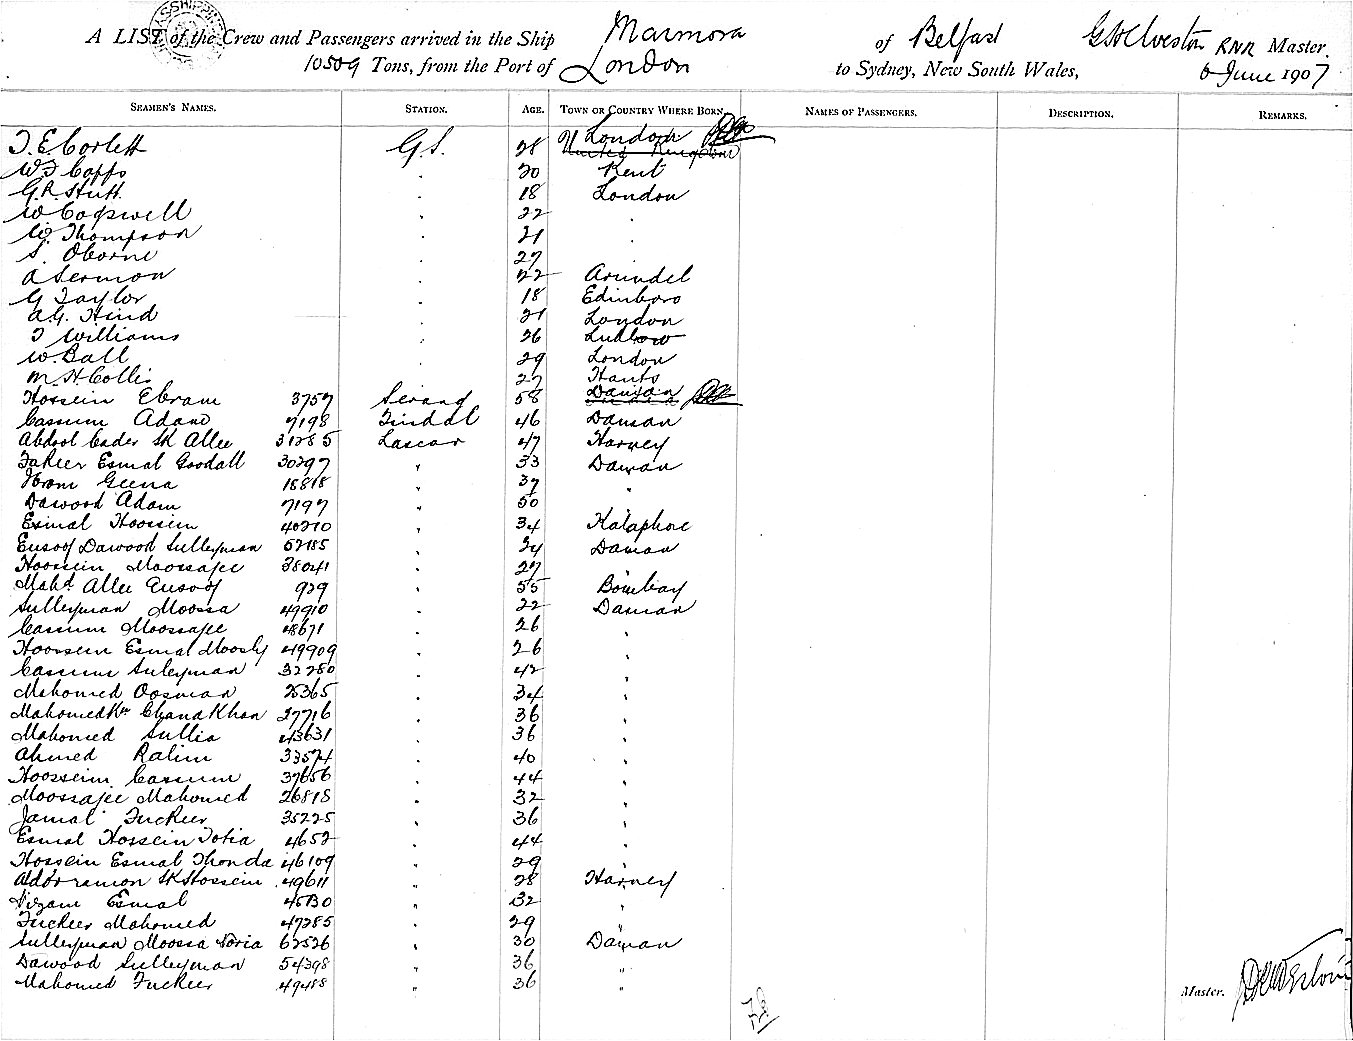 A LIST of the Crew and Passengers arrived in the Ship Marmora of Belfast RNR Master.
10509 Tons, from the Port of London to Sydney, New South Wales, 6 June 1907
SEAMEN'S NAMES. STATION. AGE. TOWN OR COUNTRY WHERE BORN. NAMES OF PASSENGERS. DESCRIPTION. REMARKS.
London
T. E Corlett G.S. 28 United Kingdom
Capps 20 Kent
G.R. Stutt 18 London
W Cogswell . 22 .
W. Thompson . 21 .
S. Oborne . 27
A Sermon . 22 Arundel
G Taylor . 18 Edinboro
A.G. Hind . 21 London
T Williams . 26 Ludlow
W. Ball . 29 London
M. H. Collis . 27 Hants
Hossein Ebram 3757 Serang 58 Daman
Cassum Adam 7198 Tindal 46 Daman
Abdool Cader Sk Allee 31285 Lascar 47 Harney
Fakeer Esmal Goodall 30297 " 33 Daman
Ibram Geena 18818 " 37 "
Dawood Adam 7197 " 50
Esmal Hoossein 40270 " 34
Eusoof Dawood Sulleyman 52185 " 24 Daman
Hoossein Moossajee 38041 " 27 "
Mahd. Allee Eusoof 929 " 55 Bombay
Sulleyman Moossa 49910 " 22 Daman
Cassum Moossajee 48671 " 26 "
Hoossein Esmal 49909 " 26 "
Cassum Suleyman 32280 " 42 "
Mahomed Oosman 25365 " 34 "
Mahomed Kn Chand Khan 27716 " 36 "
Mahomed Sullia 43631 " 36 "
Ahmed Ralim 33574 " 40 "
Hoossein Cassum 37656 " 44 "
Moossajee Mahomed 26818 " 32 "
Jamal Fuckeer 35225 " 36 "
Esmal Hossein Totia 4652 " 44 "
Hossein Esmal Thonda 46109 " 29 "
Abdorramon Sk Hossein 49611 " 28 Harney
Nizam Esmal 45130 " 32 "
Fuckeer Mahomed 47285 " 29 "
Sulleyman Moossa 62526 " 30 Daman
Dawood Sulleyman 54398 " 36 "
Mahomed Fuckeer 49488 " 36 "
Master.